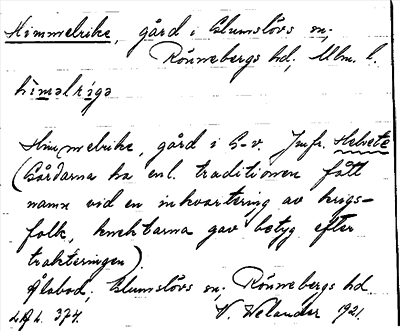 Himmelrike, gård i Glumslövs sn;
Rönnebergs hd; Mlm. l.
hìməlrigə
Himmelrike, gård i G-v. Jmfr. Helvete
(Gårdarna ha enl. traditionen fått
namn vid en inkvartering av krigs-
folk, knektarna gav betyg efter
trakteringen)
Ålabod, Glumslövs sn; Rönnebergs hd.
LAL. 374. V. Welander 1921.